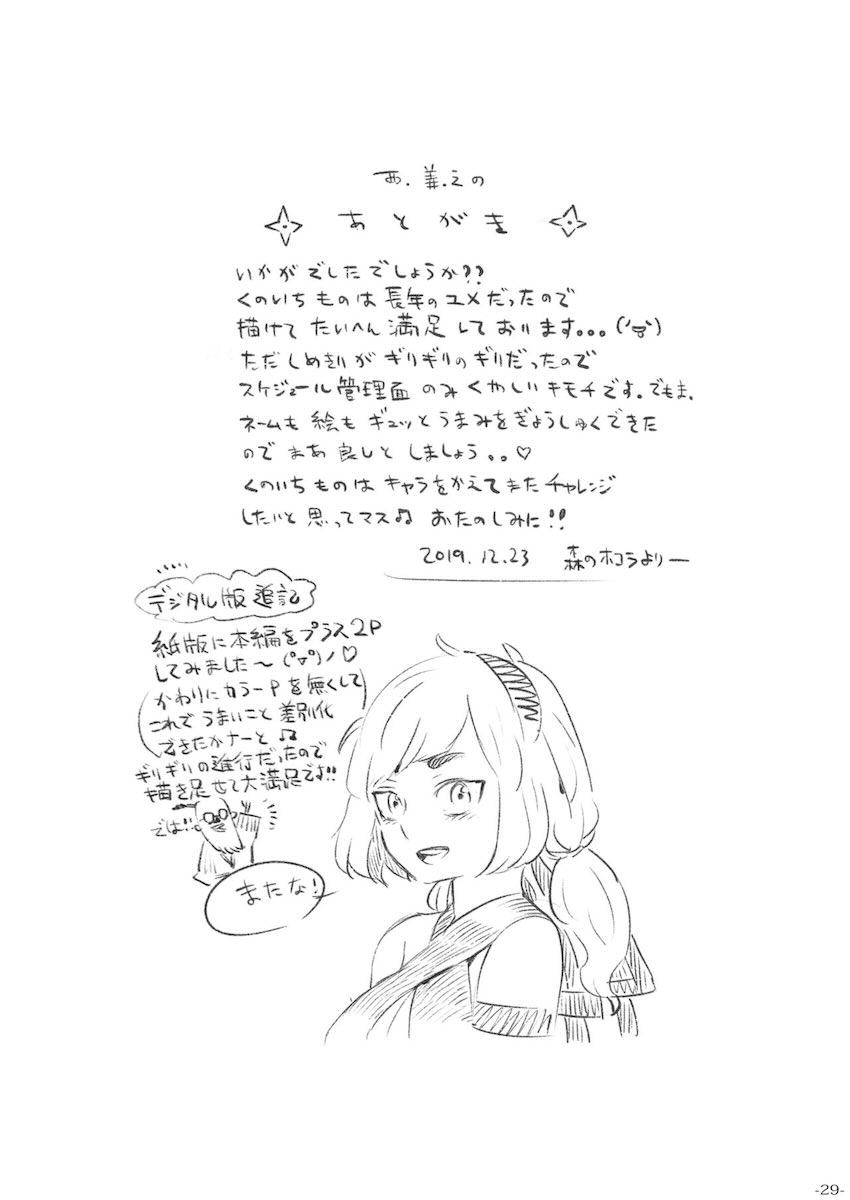 西.義.之の
あとがき
いかがでしたでしょうか??
くのいちものは長年のユメだったので
描けてたいへん満足しております。。。
ただしめきりがギリギリのギリだったので
スケジュール管理面のみくやしいキモチです。でもま、
ネームも絵もギュッとうまみをぎょうしゅくできた
のでまあ良しとしましょう。。♡
くのいちものはキャラをかえてまたチャレンジ
したいと思ってマス♫ おたのしみに!!
2019.12.23 森のホコラより―
デジタル版追記
紙版に本編をプラス2P
してみました〜(°▽°)ノ♡
(かわりにカラーPを無くして
これでうまいこと差別化
できたかナーと♫)
ギリギリの進行だったので
描き足せて大満足です!!
では!!
またな!
-29-